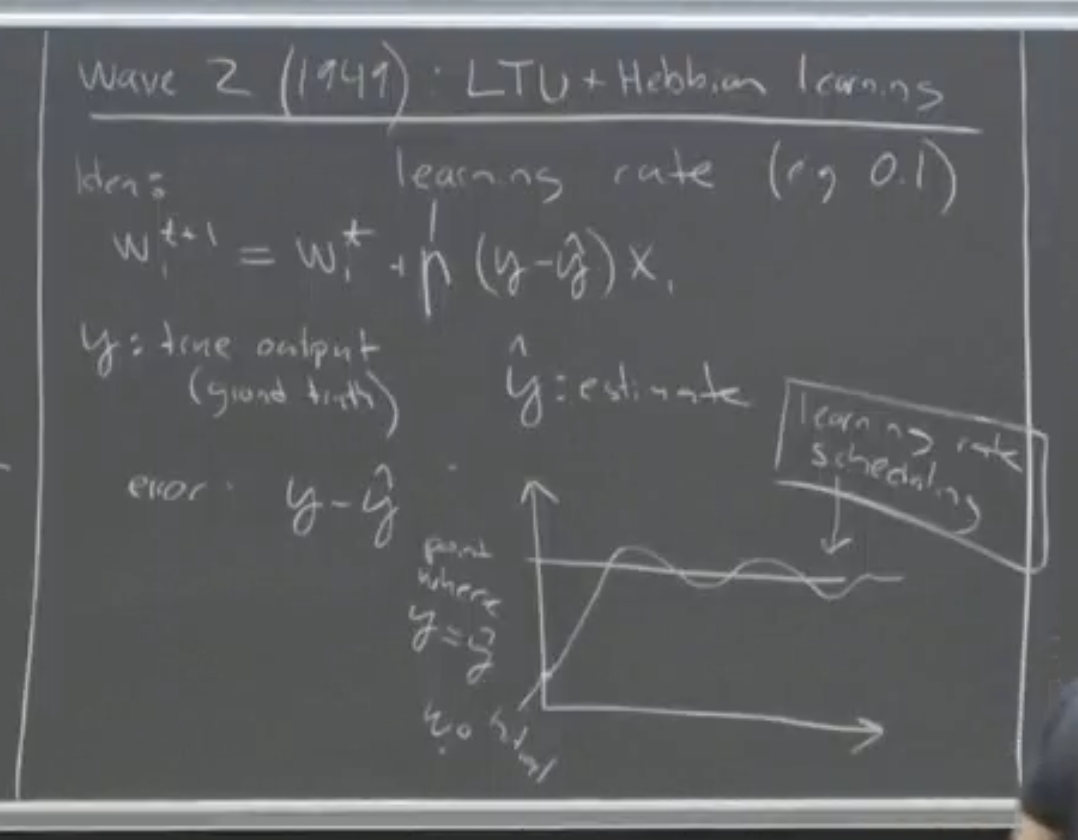 Wave 2 (1949): LTU + Hebbian learning
Idea:
learning rate (eg 0.1)
w_i^{t+1} = w_i^t + η (y - ŷ) x_i
y: true output
(ground truth)
ŷ: estimate
error: y - ŷ
learning rate
scheduling
point
where
y = ŷ